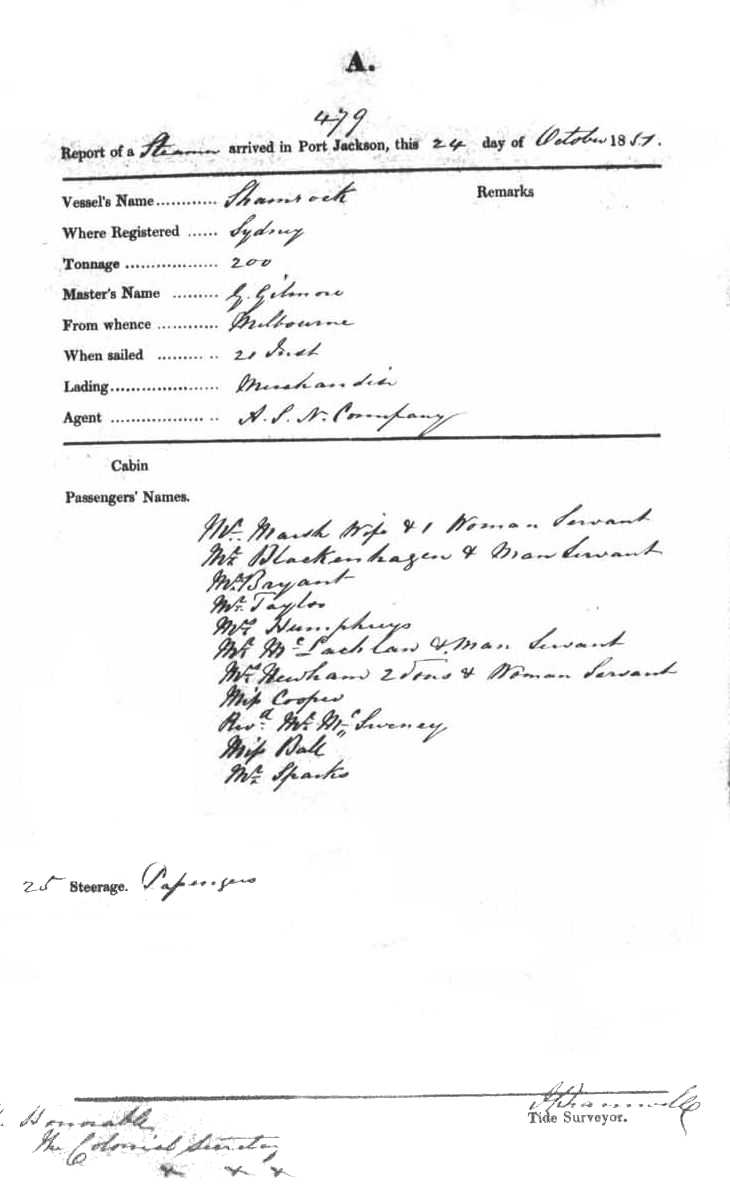 A.
479
Report of a Steamer arrived in Port Jackson, this 24 day of October 1851.
Vessel's Name............ Shamrock
Remarks
Where Registered ...... Sydney
Tonnage .................. 200
Master's Name ......... G. Gilmore
From whence ............ Melbourne
When sailed ......... .. 21 Inst
Lading..................... Merchandise
Agent .................. .. A. S. N. Company
Cabin
Passengers' Names.
Mr. Marsh Wife & 1 Woman Servant
Mr. Blackenhagen & Man Servant
Mr. Bryant
Mr. Taylor
Mrs. Humphreys
Mr. McLachlan & Man Servant
Mrs. Newham 2 Sons & Woman Servant
Miss Cooper
Revd. Mr. McSweney
Miss Ball
Mr. Sparks
25 Steerage. Passengers
Tide Surveyor.
Honorable
The Colonial Secretary
&   &   &